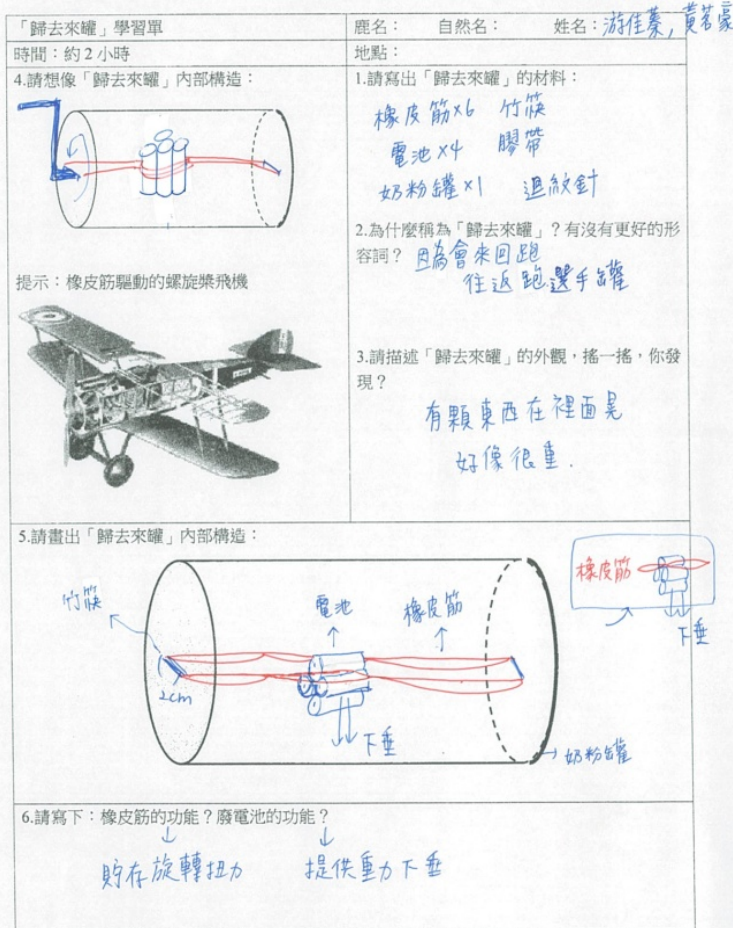 「歸去來罐」學習單
鹿名：　自然名：　姓名：游佳蓁，黃茗豪
時間：約 2 小時
地點：
4.請想像「歸去來罐」內部構造：
提示：橡皮筋驅動的螺旋槳飛機
1.請寫出「歸去來罐」的材料：
橡皮筋×6　竹筷
電池×4　膠帶
奶粉罐×1　迴紋針
2.為什麼稱為「歸去來罐」？有沒有更好的形
容詞？ 因為會來回跑
往返跑選手罐
3.請描述「歸去來罐」的外觀，搖一搖，你發
現？
有顆東西在裡面晃
好像很重.
5.請畫出「歸去來罐」內部構造：
竹筷
電池
橡皮筋
2cm
下垂
奶粉罐
橡皮筋
下垂
6.請寫下：橡皮筋的功能？廢電池的功能？
貯存旋轉扭力　提供重力下垂